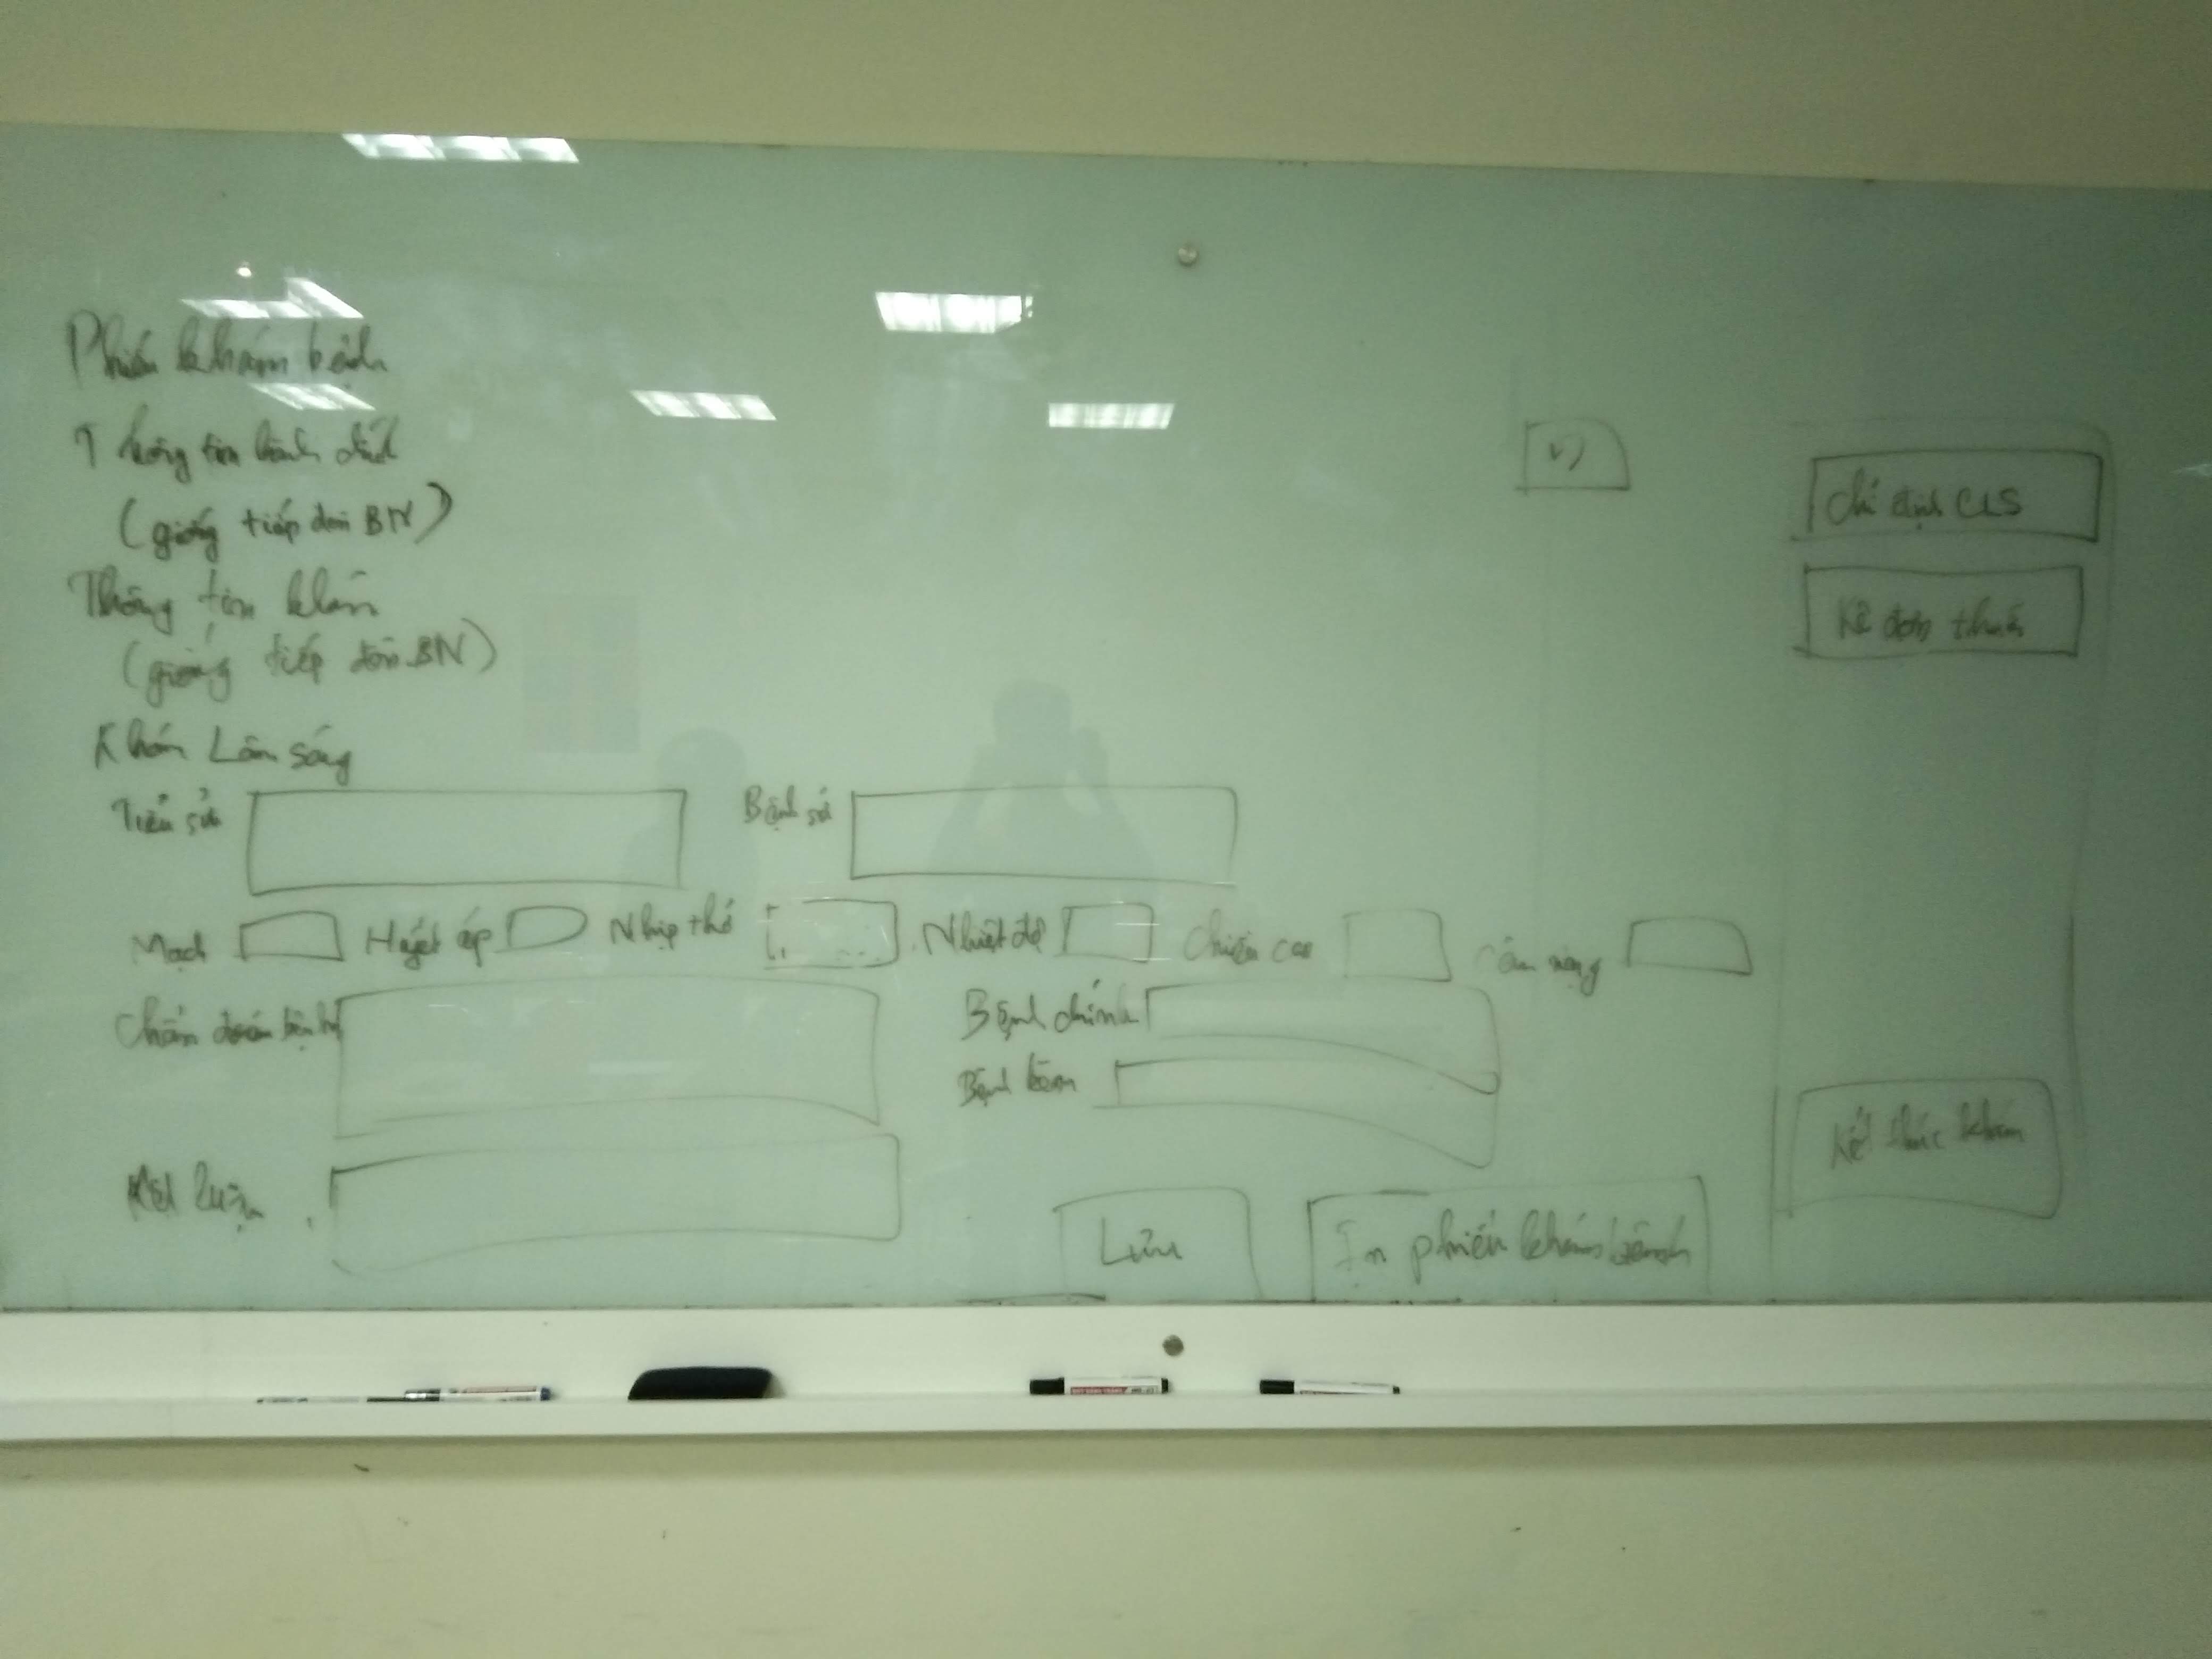 Phiếu khám bệnh
Thông tin hành chính
(giống tiếp đón BN)
Thông tin khám
(giống tiếp đón BN)
Khám Lâm sàng
Tiền sử Bệnh sử
Mạch Huyết áp Nhịp thở Nhiệt độ Chiều cao Cân nặng
Chẩn đoán bệnh Bệnh chính
Bệnh kèm
Kết luận
Lưu In phiếu khám bệnh
Chỉ định CLS
Kê đơn thuốc
Kết thúc khám